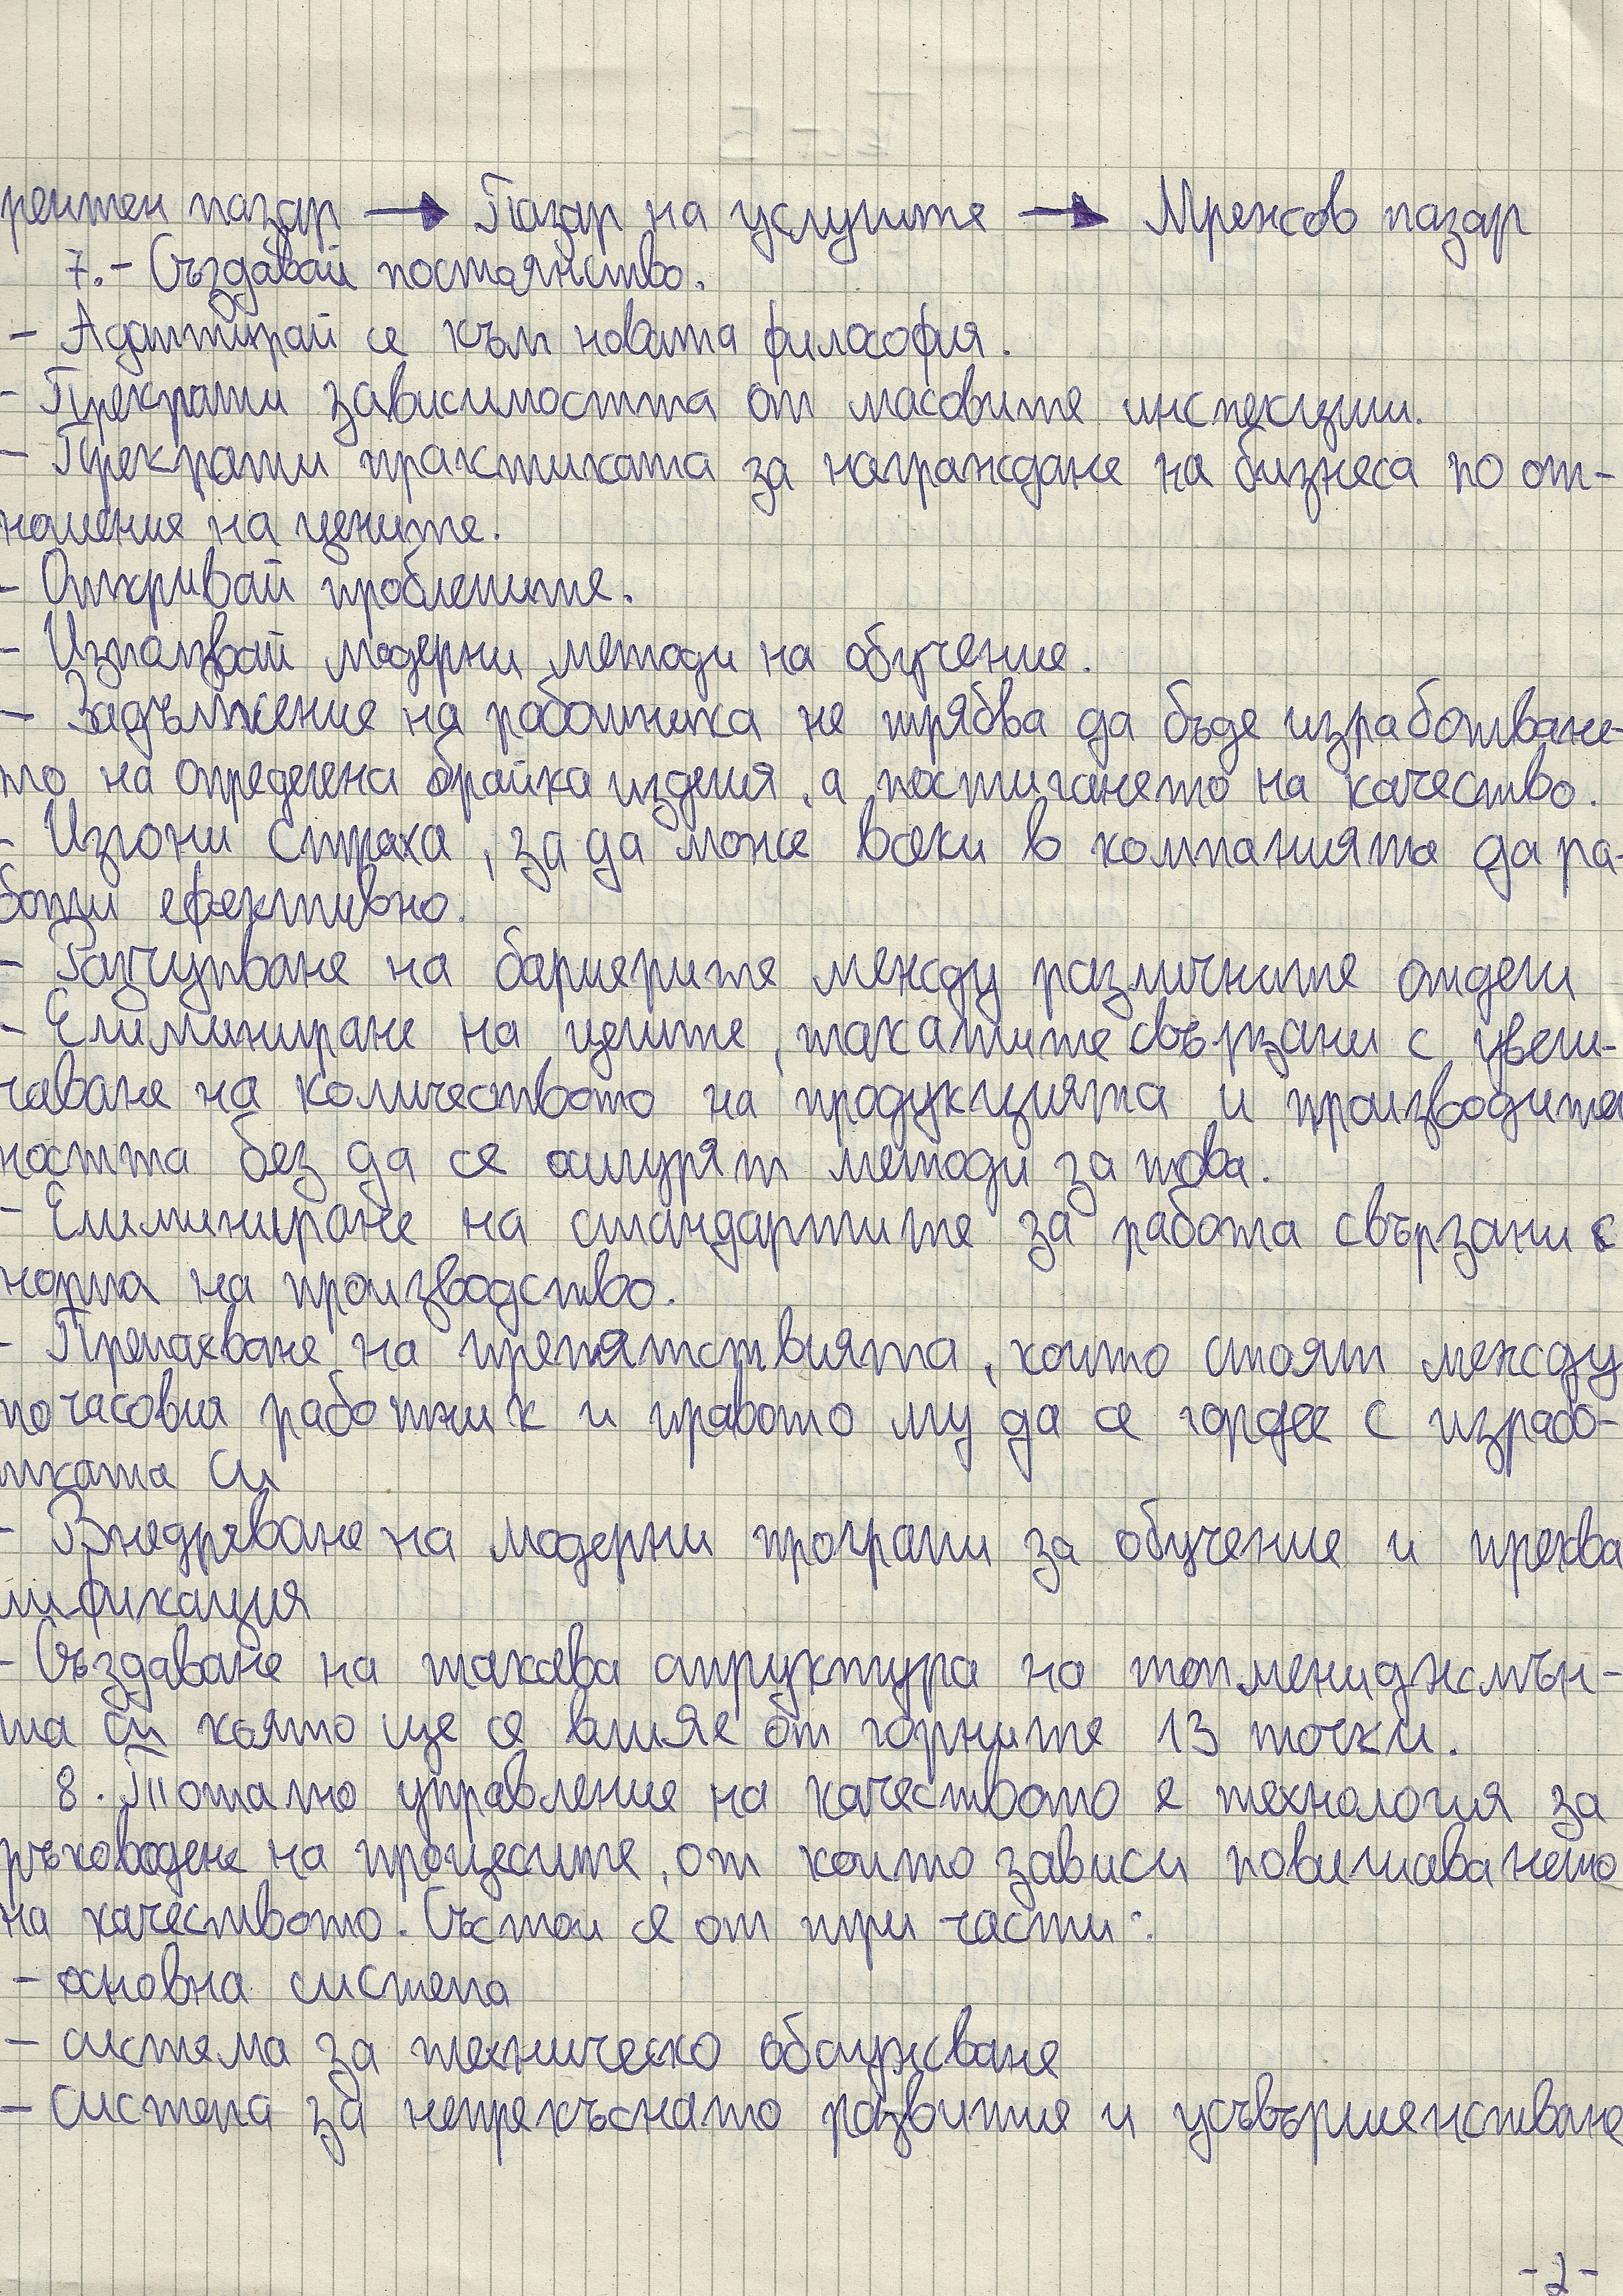 рентен пазар → Пазар на услугите → Мрежов пазар
7. - Създавай постоянство.
- Адаптирай се към новата философия.
- Прекрати зависимостта от масовите инспекции.
- Прекрати практиката за награждане на бизнеса по от-
ношение на цените.
- Откривай проблемите.
- Използвай модерни методи на обучение.
- Задължение на работника не трябва да бъде изработване-
то на определена бройка изделия, а постигането на качество.
- Изгони страха, за да може всеки в компанията да ра-
боти ефективно.
- Разчупване на бариерите между различните отдели
- Елиминиране на целите, такатите свързани с увели-
чаване на количеството на продукцията и производител
ността без да се осигурят методи за това.
- Елиминиране на стандартите за работа свързани с
норма на производство.
- Премахване на препятствията, които стоят между
почасовия работник и правото му да се гордее с израбо-
тката си
- Внедряване на модерни програми за обучение и преква
лификация
- Създаване на такава структура на топмениджмън-
та си която ще се влияе от горните 13 точки.
8. Тотално управление на качеството е технология за
ръководене на процесите, от които зависи повишаването
на качеството. Състои се от три части:
- основна система
- система за техническо обслужване
- система за непрекъснато развитие и усъвършенстване
-2-